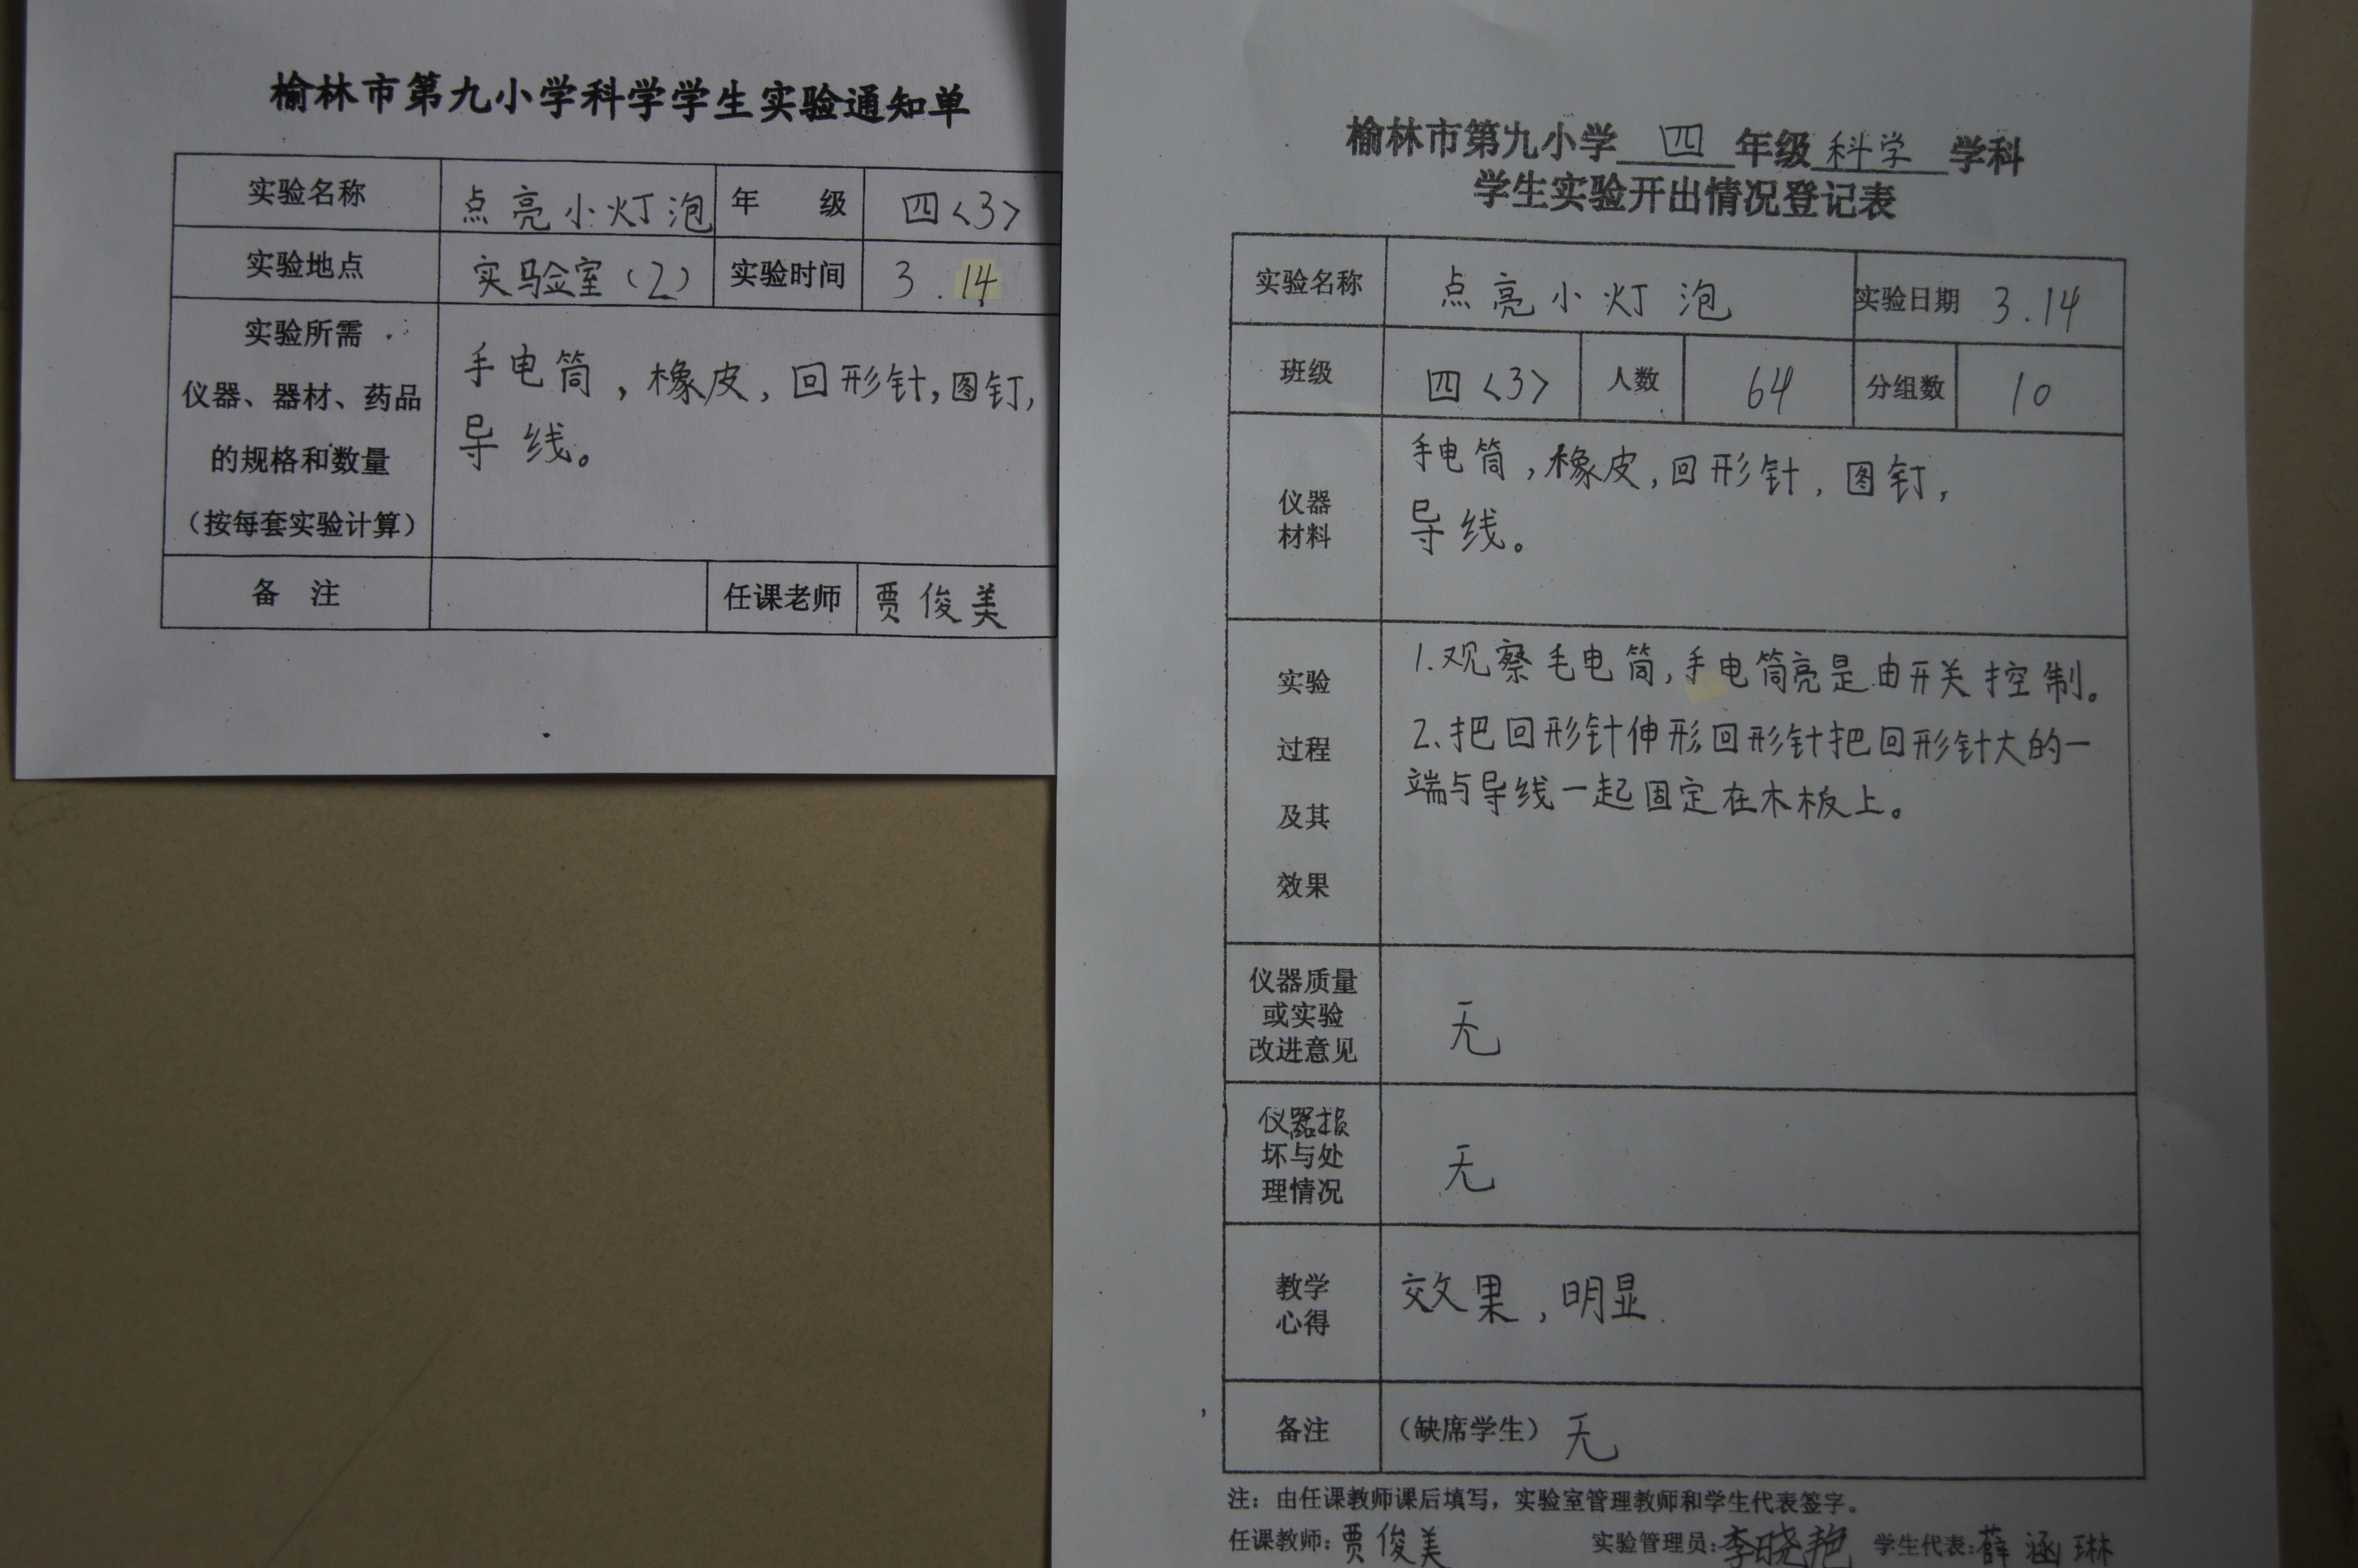 榆林市第九小学科学学生实验通知单
实验名称 点亮小灯泡 年 级 四<3>
实验地点 实验室(2) 实验时间 3.14
实验所需
仪器、器材、药品
的规格和数量
(按每套实验计算)
手电筒,橡皮,回形针,图钉,
导线。
备 注 任课老师 贾俊美
榆林市第九小学 四 年级 科学 学科
学生实验开出情况登记表
实验名称 点亮小灯泡 实验日期 3.14
班级 四<3> 人数 64 分组数 10
仪器
材料
手电筒,橡皮,回形针,图钉,
导线。
实验
过程
及其
效果
1.观察毛电筒,手电筒亮是由开关控制。
2、把回形针伸形回形针把回形针大的一
端与导线一起固定在木板上。
仪器质量
或实验
改进意见
无
仪器损
坏与处
理情况
无
教学
心得
效果,明显.
备注 (缺席学生) 无
注:由任课教师课后填写,实验室管理教师和学生代表签字。
任课教师:贾俊美 实验管理员:李晓艳 学生代表:薛涵琳